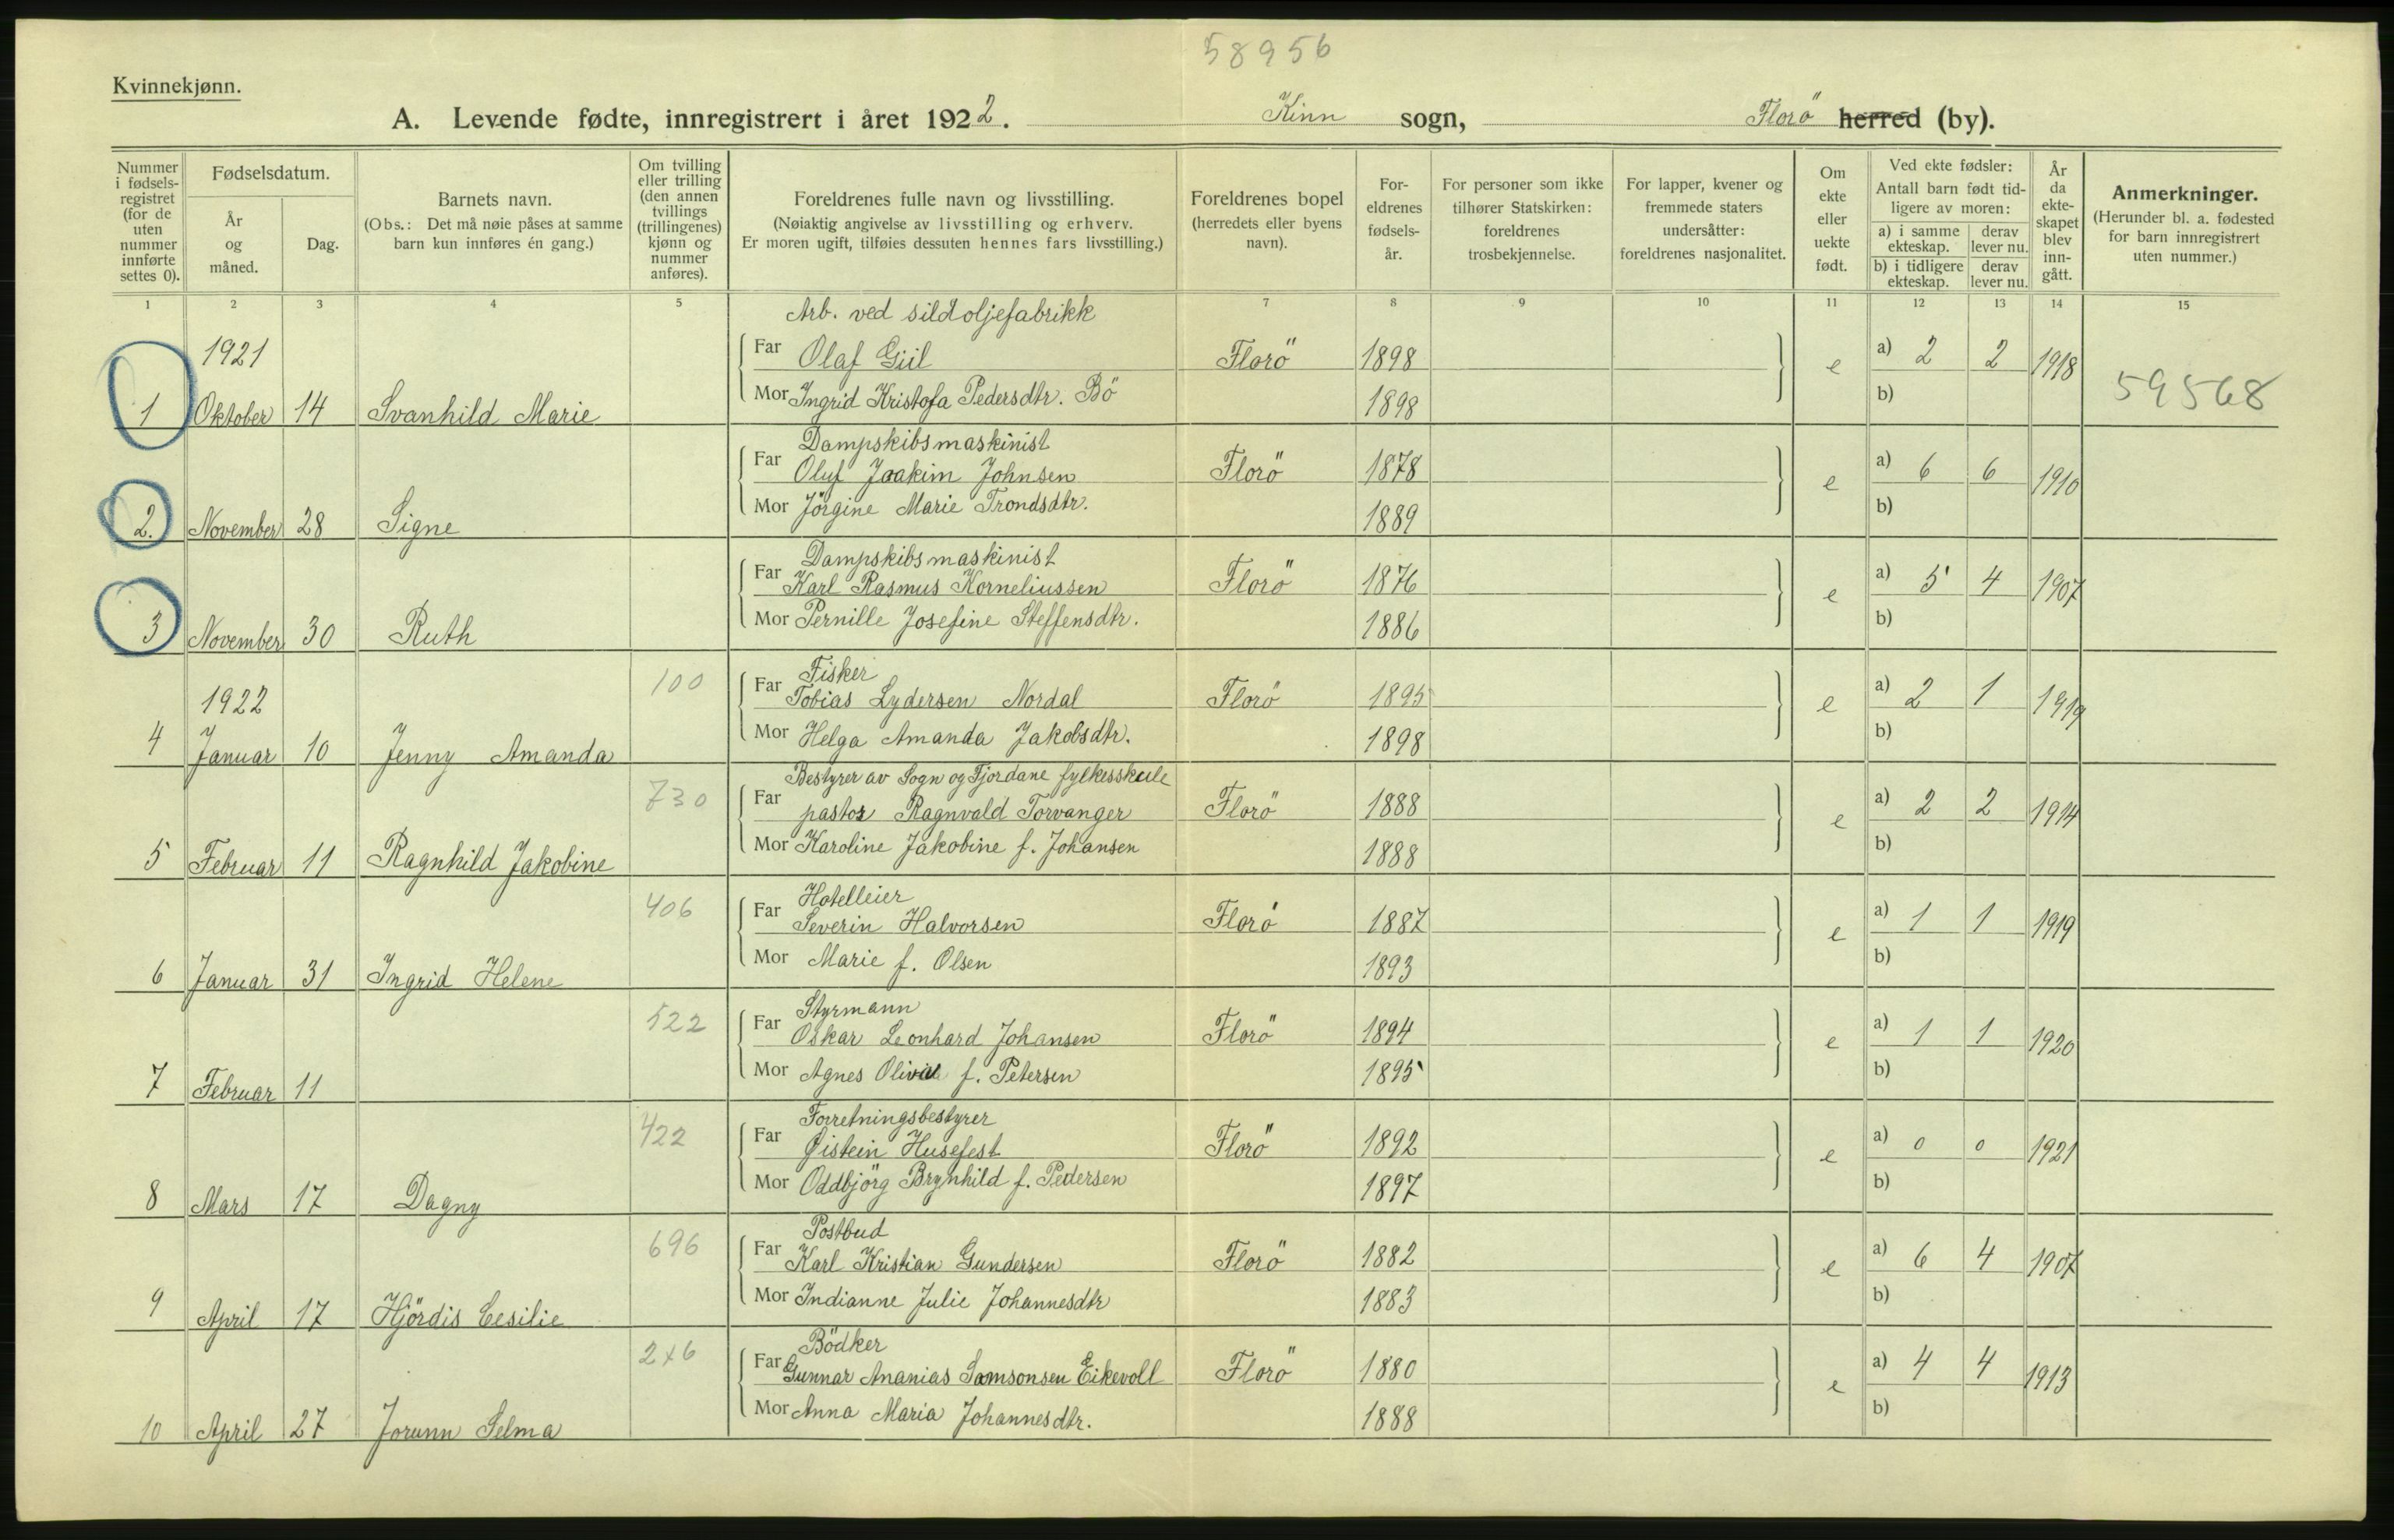 58956
Kvinnekjønn.
A. Levende fødte, innregistrert i året 1922. Kinn sogn, Florö herred (by).
Nummer i fødselsregistret (for de uten nummer innførte settes 0).
Fødselsdatum.
År og måned.
Dag.
Barnets navn.
(Obs.: Det må nøie påses at samme barn kun innføres én gang.)
Om tvilling eller trilling (den annen tvillings (trillingenes) kjønn og nummer anføres).
Foreldrenes fulle navn og livsstilling.
(Nøiaktig angivelse av livsstilling og erhverv.
Er moren ugift, tilføies dessuten hennes fars livsstilling.)
Foreldrenes bopel
(herredets eller byens navn).
Foreldrenes fødselsår.
For personer som ikke tilhører Statskirken: foreldrenes trosbekjennelse.
For lapper, kvener og fremmede staters undersåtter: foreldrenes nasjonalitet.
Om ekte eller uekte født.
Ved ekte fødsler:
Antall barn født tidligere av moren:
a) i samme ekteskap. derav lever nu.
b) i tidligere ekteskap. derav lever nu.
År da ekteskapet blev inngått.
Anmerkninger.
(Herunder bl. a. fødested for barn innregistrert uten nummer.)
1 2 3 4 5 7 8 9 10 11 12 13 14 15
Arb. ved sildoljefabrikk
1921 Far Olaf Giil Florö 1898 e a) 2 2 1918 59568
1 Oktober 14 Svanhild Marie Mor Ingrid Kristofa Pedersdtr. Bö 1898 b)
Dampskibsmaskinist
Far Oluf Joakim Johnsen Florö 1878 e a) 6 6 1910
2. November 28 Signe Mor Jörgine Marie Trondsdtr. 1889 b)
Dampskibsmaskinist
Far Karl Rasmus Korneliussen Florö 1876 e a) 5 4 1907
3 November 30 Ruth Mor Pernille Josefine Steffensdtr. 1886 b)
Fisker
1922 100 Far Tobias Lydersen Nordal Florö 1895 e a) 2 1 1919
4 Januar 10 Jenny Amanda Mor Helga Amanda Jakobsdtr. 1898 b)
Bestyrer av Sogn og Fjordane fylkesskule
730 Far pastor Ragnvald Torvanger Florö 1888 e a) 2 2 1914
5 Februar 11 Ragnhild Jakobine Mor Karoline Jakobine f. Johansen 1888 b)
Hotelleier
406 Far Severin Halvorsen Florö 1887 e a) 1 1 1919
6 Januar 31 Ingrid Helene Mor Marie f. Olsen 1893 b)
Styrmann
522 Far Oskar Leonhard Johansen Florö 1894 e a) 1 1 1920
7 Februar 11 Mor Agnes f. Petersen 1895 b)
Forretningsbestyrer
422 Far Øistein Husefest Florö 1892 e a) 0 0 1921
8 Mars 17 Dagny Mor Oddbjörg Brynhild f. Pedersen 1897 b)
Postbud
696 Far Karl Kristian Gundersen Florö 1882 e a) 6 4 1907
9 April 17 Hjördis Cesilie Mor Indianne Julie Johannesdtr 1883 b)
Bödker
Far Gunnar Ananias Samsonsen Eikevoll Florö 1880 e a) 4 4 1913
10 April 27 Jorunn Selma Mor Anna Maria Johannesdtr. 1888 b)